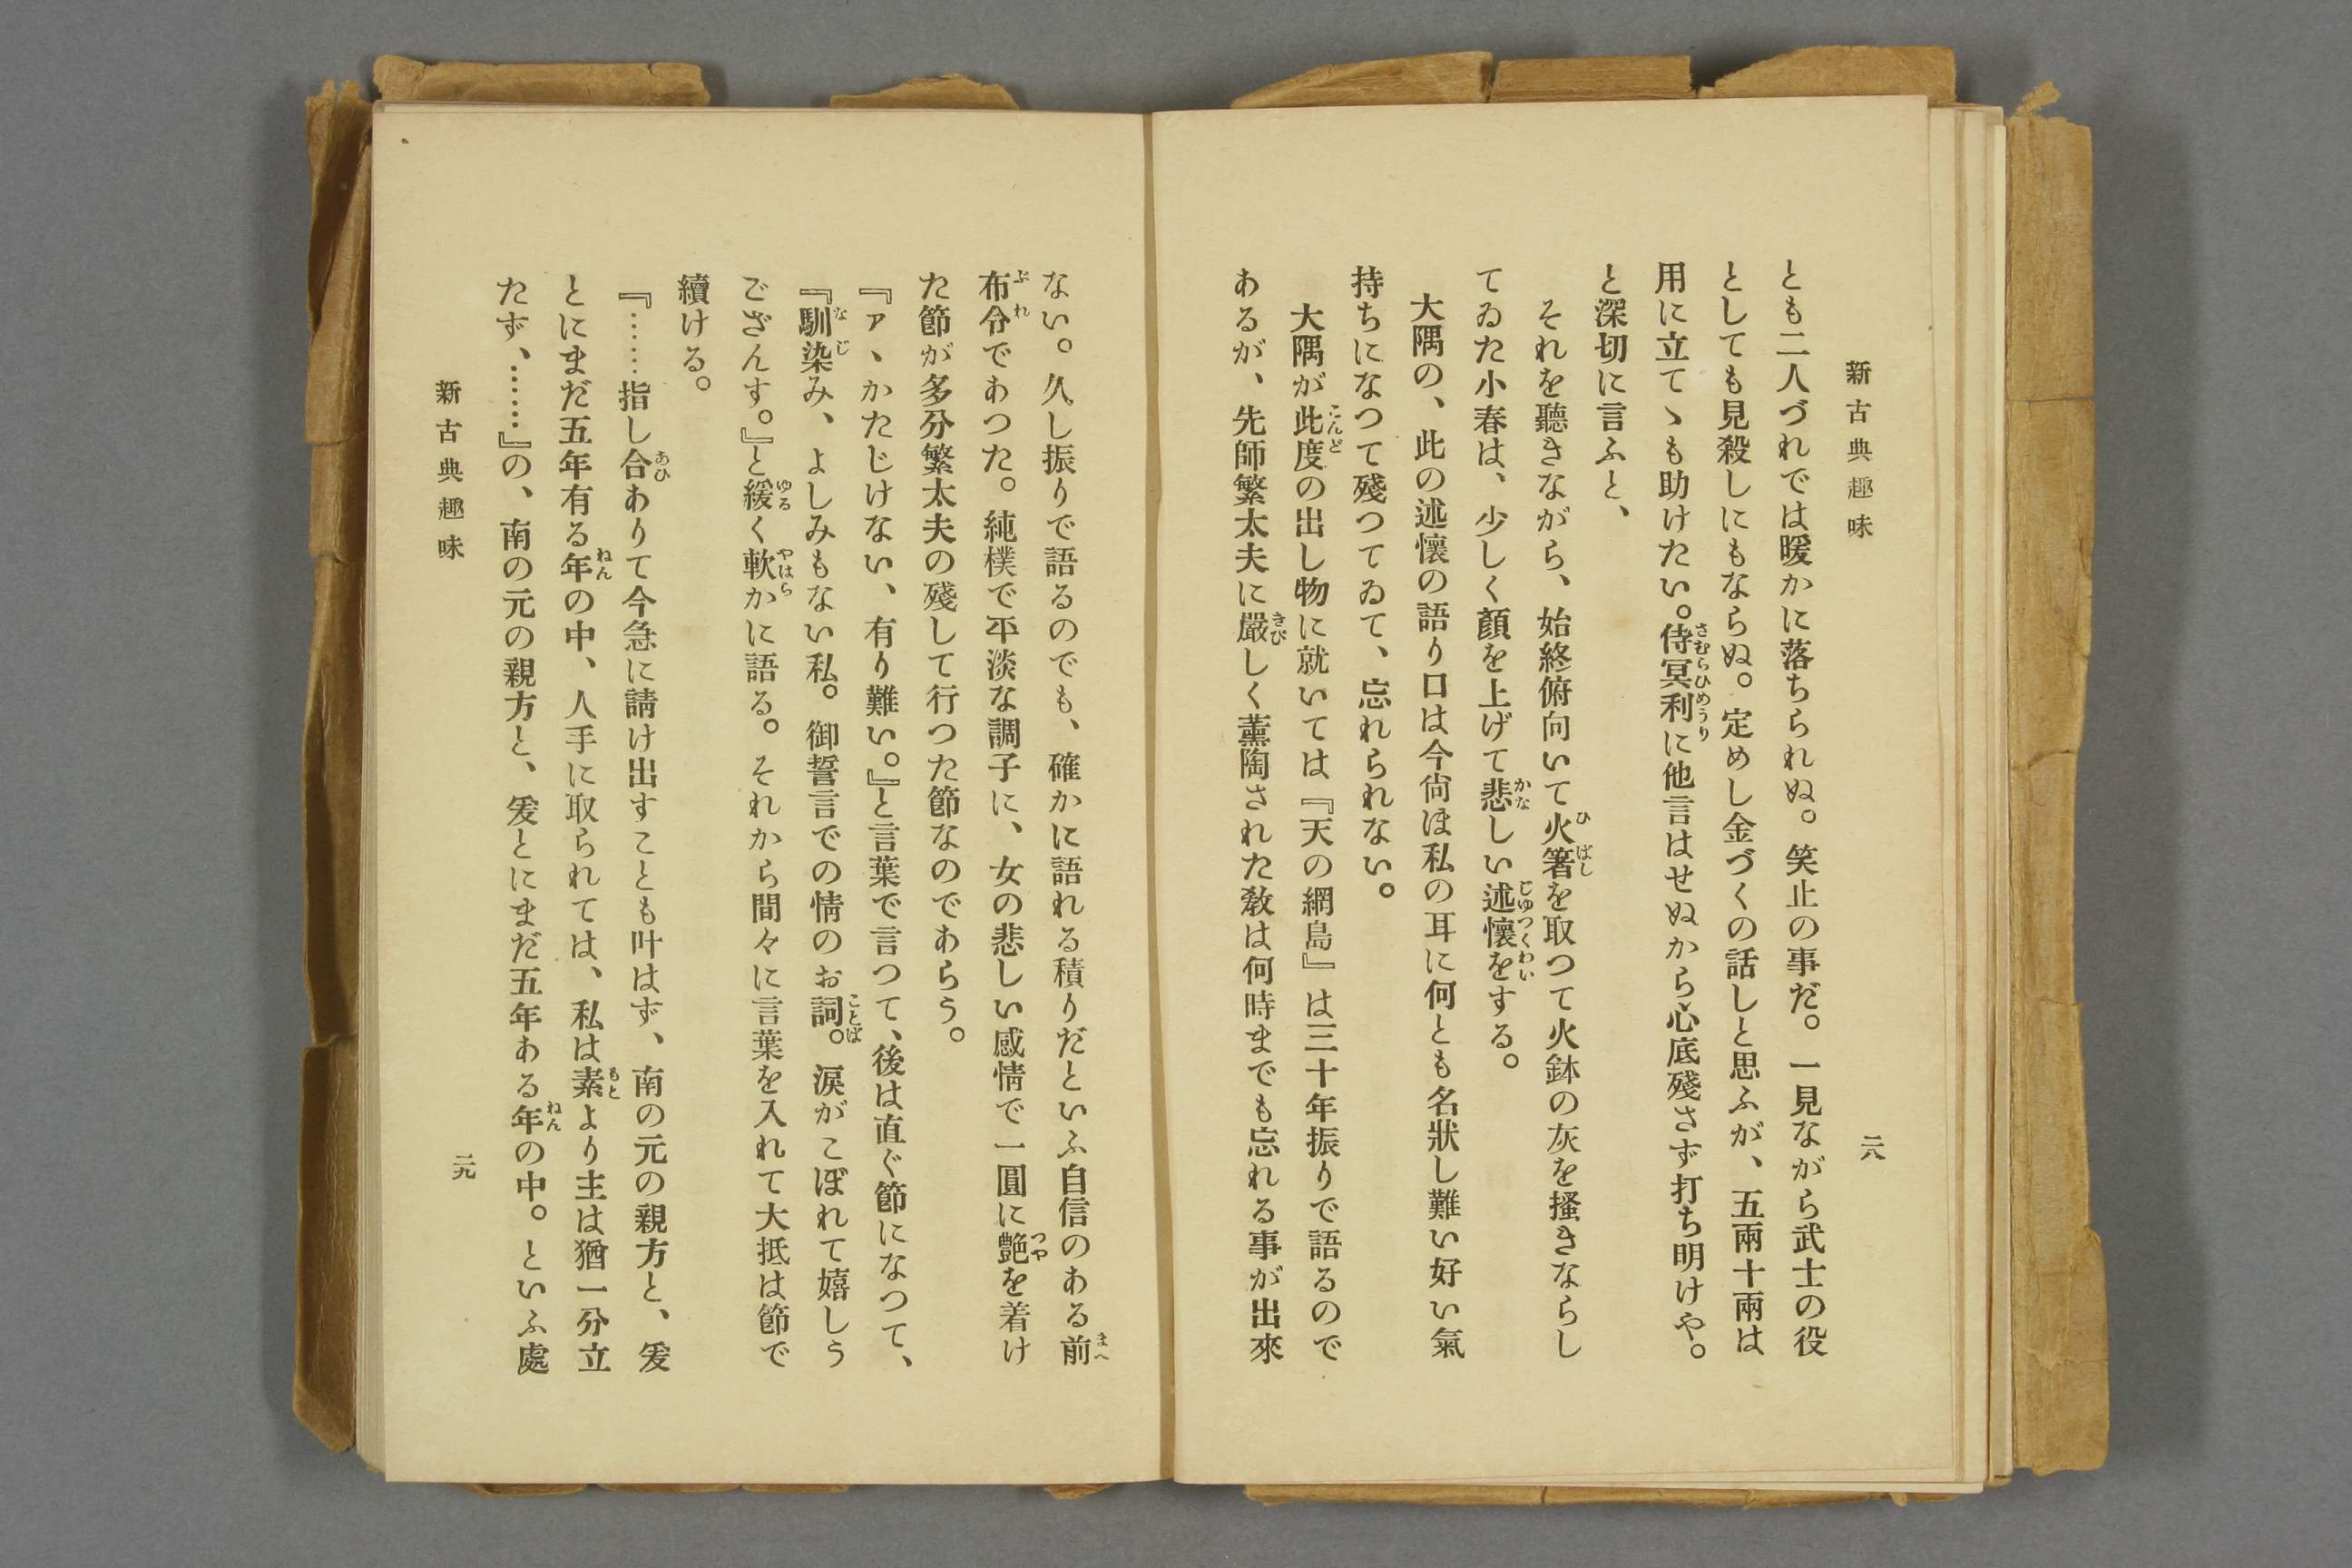 新古典趣味
二八
とも二人づれでは暖かに落ちられぬ。笑止の事だ。一見ながら武士の役
としても見殺しにもならぬ。定めし金づくの話しと思ふが、五兩十兩は
用に立てゝも助けたい。侍冥利に他言はせぬから心底殘さず打ち明けや。
と深切に言ふと、
それを聽きながら、始終俯向いて火箸を取つて火鉢の灰を搔きならし
てゐた小春は、少しく顏を上げて悲しい述懷をする。
大隅の、此の述懷の語り口は今尙ほ私の耳に何とも名狀し難い好い氣
持ちになつて殘つてゐて、忘れられない。
大隅が此度の出し物に就いては『天の網島』は三十年振りで語るので
あるが、先師繁太夫に嚴しく薰陶された敎は何時までも忘れる事が出來
ない。久し振りで語るのでも、確かに語れる積りだといふ自信のある前
布令であつた。純樸で平淡な調子に、女の悲しい感情で一圓に艶を着け
た節が多分繁太夫の殘して行つた節なのであらう。
『ァヽかたじけない、有り難い。』と言葉で言つて、後は直ぐ節になつて、
『馴染み、よしみもない私。御誓言での情のお詞。涙がこぼれて嬉しう
ござんす。』と緩く軟かに語る。それから間々に言葉を入れて大抵は節で
續ける。
『……指し合ありて今急に請け出すことも叶はず、南の元の親方と、爰
とにまだ五年有る年の中、人手に取られては、私は素より主は猶一分立
たず、……』の、南の元の親方と、爰とにまだ五年ある年の中。といふ處
新古典趣味
二九